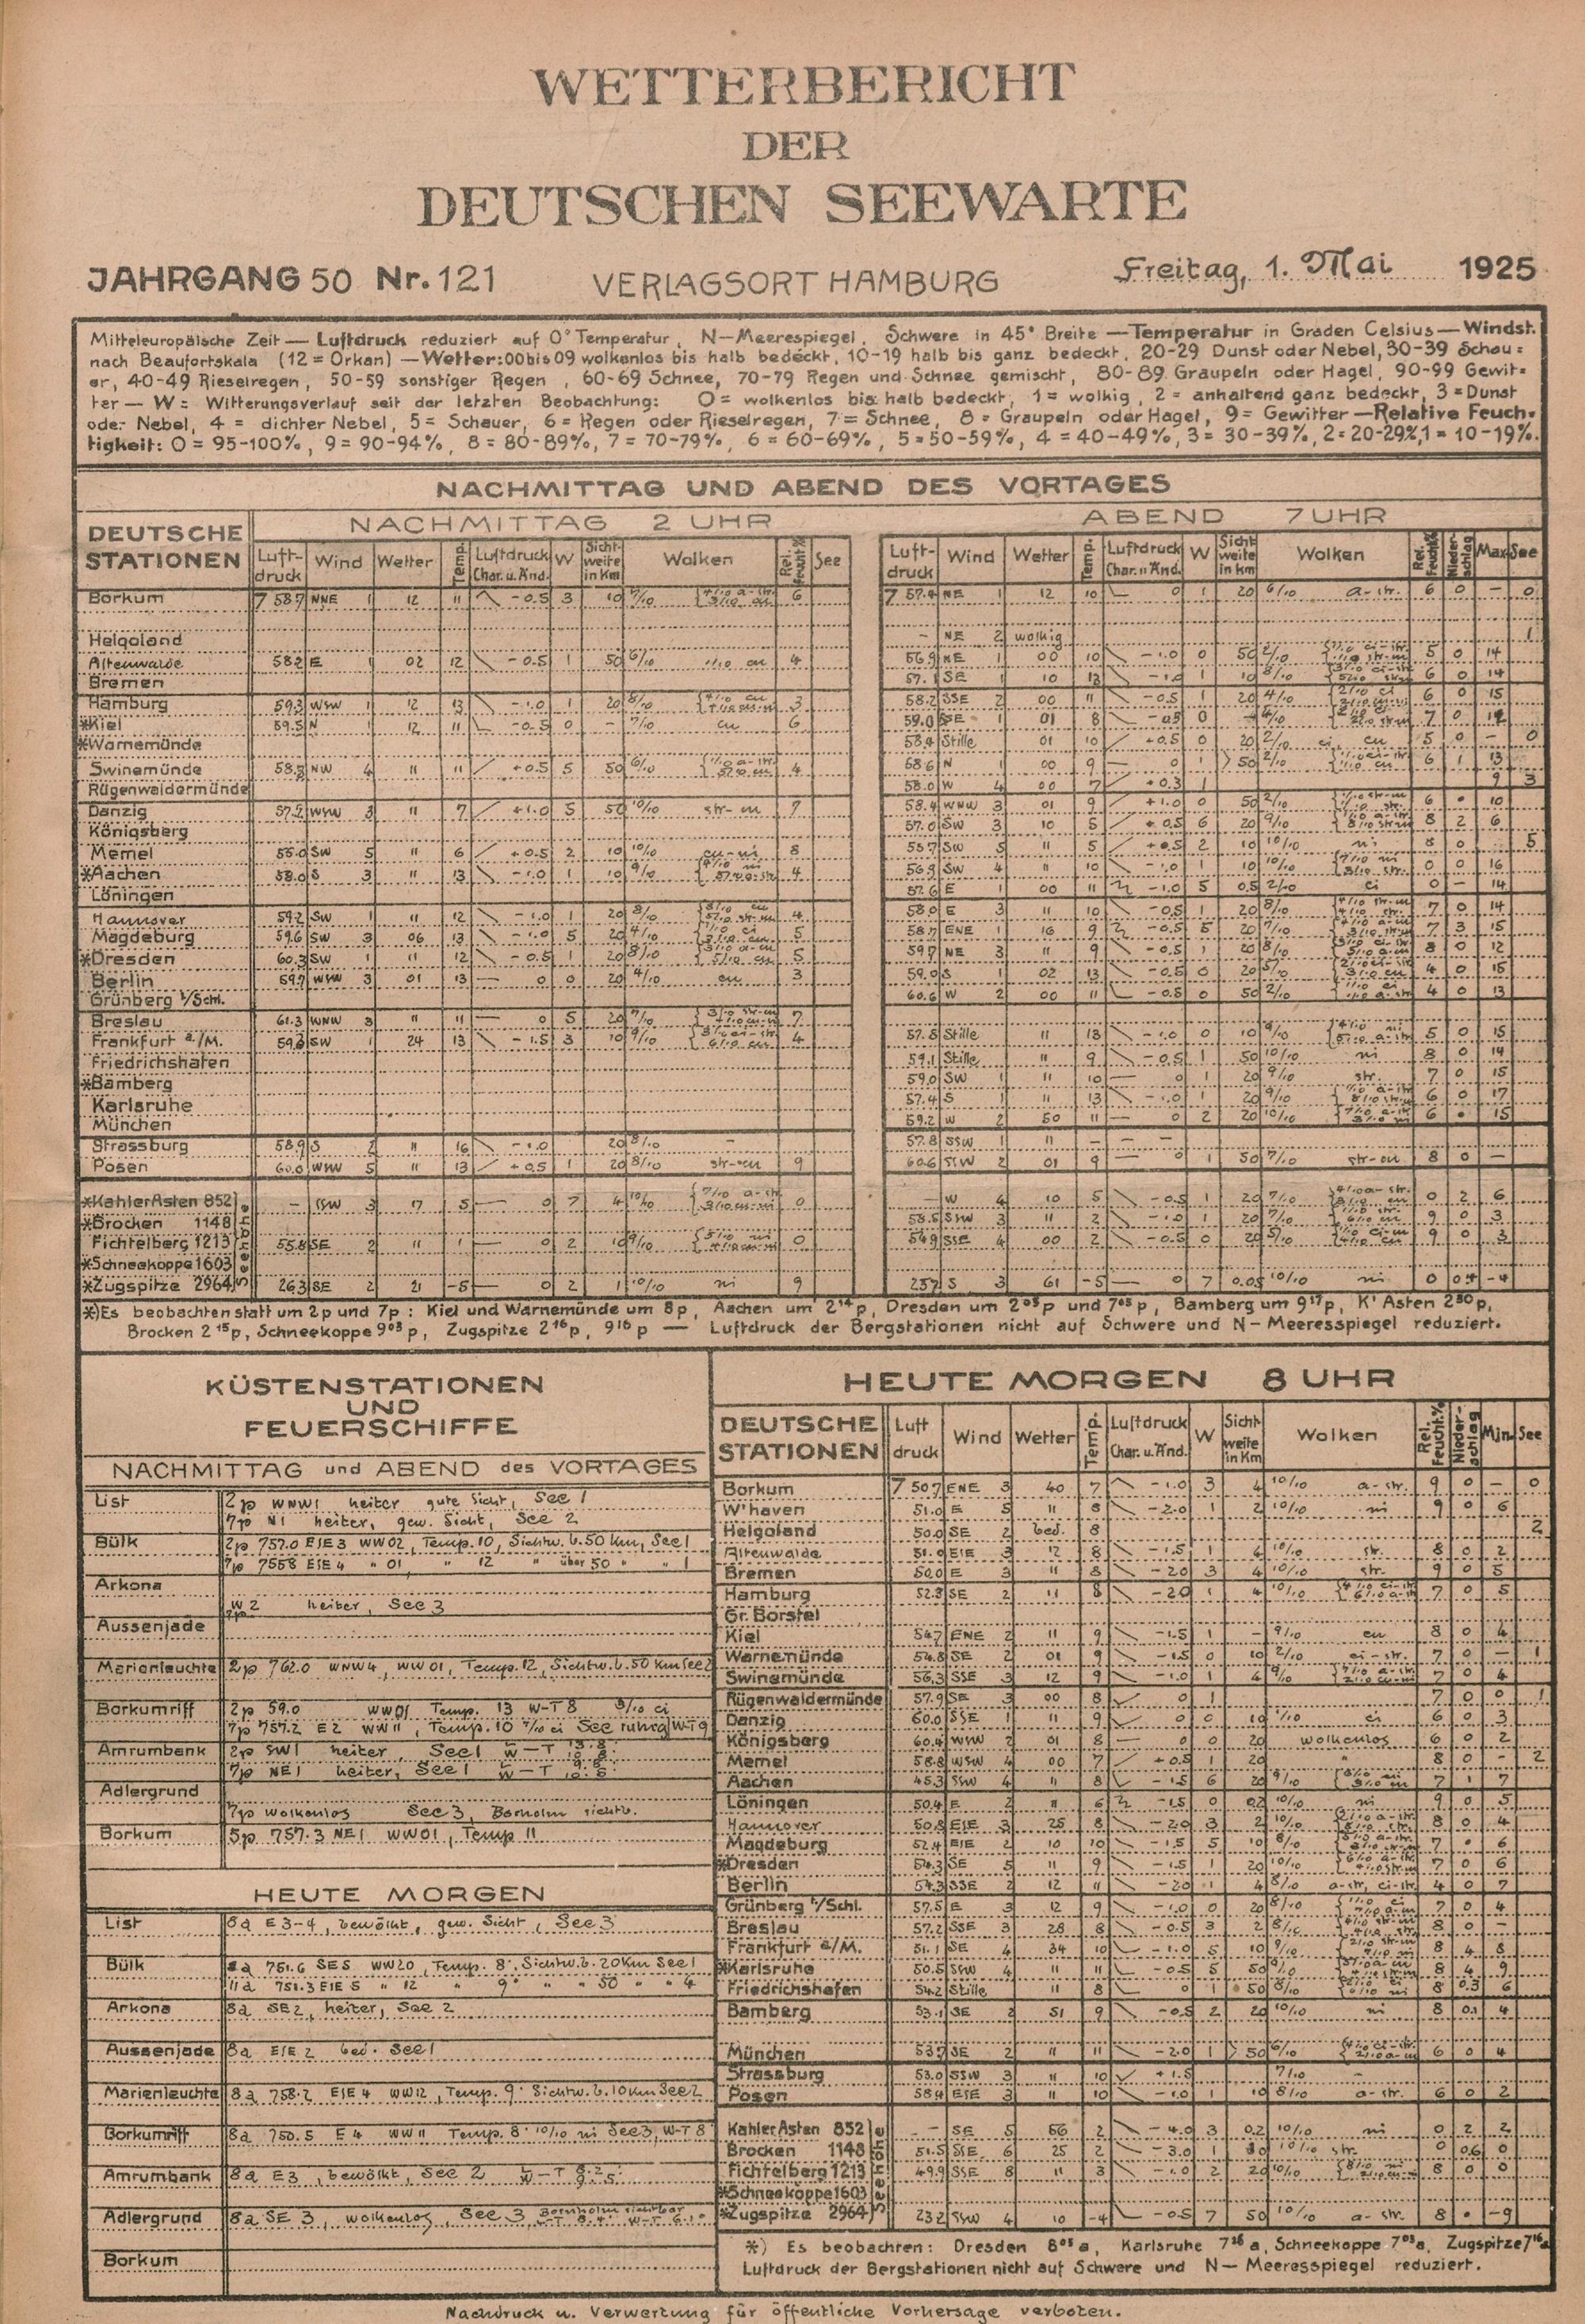 WETTERBERICHT
DER
DEUTSCHEN SEEWARTE
JAHRGANG 50 Nr. 121 VERLAGSORT HAMBURG Freitag, 1. Mai 1925
Mitteleuropäische Zeit — Luftdruck reduziert auf 0° Temperatur, N-Meerespiegel, Schwere in 45° Breite — Temperatur in Graden Celsius — Windst.
nach Beaufortskala (12 = Orkan) — Wetter: 00 bis 09 wolkenlos bis halb bedeckt, 10-19 halb bis ganz bedeckt, 20-29 Dunst oder Nebel, 30-39 Schau=
er, 40-49 Rieselregen, 50-59 sonstiger Regen, 60-69 Schnee, 70-79 Regen und Schnee gemischt, 80-89 Graupeln oder Hagel, 90-99 Gewit=
ter — W = Witterungsverlauf seit der letzten Beobachtung: 0 = wolkenlos bis halb bedeckt, 1 = wolkig, 2 = anhaltend ganz bedeckt, 3 = Dunst
oder Nebel, 4 = dichter Nebel, 5 = Schauer, 6 = Regen oder Rieselregen, 7 = Schnee, 8 = Graupeln oder Hagel, 9 = Gewitter — Relative Feuch=
tigkeit: 0 = 95-100%, 9 = 90-94%, 8 = 80-89%, 7 = 70-79%, 6 = 60-69%, 5 = 50-59%, 4 = 40-49%, 3 = 30-39%, 2 = 20-29%, 1 = 10-19%.
NACHMITTAG UND ABEND DES VORTAGES
DEUTSCHE STATIONEN
NACHMITTAG 2 UHR
ABEND 7 UHR
Luftdruck Wind Wetter Temp. Luftdruck Char. u. Änd. W Sichtweite in Km Wolken Rel. Feucht.% See
Luftdruck Wind Wetter Temp. Luftdruck Char. u. Änd. W Sichtweite in Km Wolken Rel. Feucht.% Niederschlag Max. See
Borkum 758.7 NNE 1 12 11 - 0.5 3 10 7/10 6 757.4 NE 1 12 10 0 1 20 6/10 a-str. 6 0 - 0
Helgoland - NE 2 wolkig 1
Altenwalde 58.2 E 1 02 12 - 0.5 1 50 6/10 4 56.9 NE 1 00 10 - 1.0 0 50 2/10 5 0 14
Bremen 57.1 SE 1 10 13 1 10 8/10 6 0 14
Hamburg 59.3 WSW 1 12 13 - 1.0 1 20 8/10 3 58.2 SSE 2 00 11 - 0.5 1 20 4/10 6 0 15
*Kiel 59.5 N 1 12 11 - 0.5 0 - 7/10 cu 6 59.0 SSE 1 01 8 - 0.5 0 7 0
*Warnemünde 58.4 Stille 01 10 + 0.5 0 20 2/10 ci, cu 5 0 - 0
Swinemünde NW 4 11 11 + 0.5 5 50 6/10 4 58.6 N 1 00 9 0 1 >50 2/10 6 1 13
Rügenwaldermünde 58.0 W 4 00 7 + 0.3 1 9 3
Danzig 57.2 WNW 3 11 7 + 1.0 5 50 10/10 str-cu 7 58.4 WNW 3 01 9 + 1.0 0 50 2/10 6 • 10
Königsberg 57.0 SW 3 10 5 + 0.5 6 20 9/10 8 2 6
Memel 55.0 SW 5 11 6 + 0.5 2 10 10/10 cu-ni 8 55.7 SW 5 11 5 + 0.5 2 10 10/10 ni 8 0 5
*Aachen 58.0 S 3 11 13 - 1.0 1 10 9/10 4 56.9 SW 4 11 10 - 1.0 1 10 10/10 0 0 16
Löningen 57.6 E 1 00 11 - 1.0 5 0.5 2/10 ci 0 - 14
Hannover 59.2 SW 1 11 12 - 1.0 1 20 8/10 4 58.0 E 3 11 10 - 0.5 1 20 8/10 7 0 14
Magdeburg 59.6 SW 3 06 13 - 1.0 5 20 4/10 5 58.7 ENE 1 16 9 - 0.5 5 20 7/10 7 3 15
*Dresden 60.3 SW 1 11 12 - 0.5 1 20 8/10 5 59.7 NE 3 11 9 - 0.5 1 20 8/10 8 0 12
Berlin 59.7 WNW 3 01 13 — 0 0 20 4/10 cu 3 59.0 S 1 02 13 - 0.5 0 20 5/10 4 0 15
Grünberg i/Schl. 60.6 W 2 00 11 - 0.5 0 50 2/10 4 0 13
Breslau 61.3 WNW 3 11 11 — 0 5 20 7/10 7
Frankfurt a./M. 59.3 SW 1 24 13 - 1.5 3 10 9/10 4 57.5 Stille 11 13 - 1.0 0 10 9/10 5 0 15
Friedrichshafen 59.1 Stille 11 9 - 0.5 1 50 10/10 ni 8 0 14
*Bamberg 59.0 SW 1 11 10 — 0 1 20 9/10 str. 7 0 15
Karlsruhe 57.4 S 1 11 13 - 1.0 1 20 9/10 6 0 17
München 59.2 W 2 50 11 — 0 2 20 10/10 6 • 15
Strassburg 58.9 S 2 11 16 - 1.0 20 8/10 - 57.8 SSW 1 11 - - -
Posen 60.0 WSW 5 11 13 + 0.5 1 20 8/10 str-cu 9 60.6 SSW 2 01 9 — 0 1 50 7/10 str-cu 8 0 -
*Kahler Asten 852 - SSW 3 17 5 — 0 7 4 10/10 0 - W 4 10 5 - 0.5 1 20 7/10 0 2 6
*Brocken 1148 58.5 SSW 3 11 2 - 1.0 1 20 7/10 9 0 3
Fichtelberg 1213 55.8 SE 2 11 1 — 0 2 10 9/10 0 54.9 SSE 4 00 2 - 0.5 0 20 5/10 9 0 3
*Schneekoppe 1603
*Zugspitze 2964 26.3 SE 2 21 -5 — 0 2 1 10/10 ni 9 25.7 S 3 61 -5 — 0 7 0.05 10/10 ni 0 -4
Seehöhe
*) Es beobachten statt um 2p und 7p: Kiel und Warnemünde um 8p, Aachen um 2¹⁴p, Dresden um 2⁰⁵p und 7⁰⁵p, Bamberg um 9¹⁷p, K' Asten 2³⁰p,
Brocken 2¹⁵p, Schneekoppe 9⁰³p, Zugspitze 2¹⁶p, 9¹⁶p — Luftdruck der Bergstationen nicht auf Schwere und N-Meeresspiegel reduziert.
KÜSTENSTATIONEN
UND
FEUERSCHIFFE
NACHMITTAG und ABEND des VORTAGES
List 2p WNW1 heiter gute Sicht, See 1
7p N1 heiter, gew. Sicht, See 2
Bülk 2p 757.0 ESE 3 WW02, Temp. 10, Sichtw. b. 50 Km, See 1
7p 755.8 ESE 4 " 01, " 12 " über 50 " " 1
Arkona
7p W 2 heiter, See 3
Aussenjade
Marienleuchte 2p 762.0 WNW4, WW01, Temp. 12, Sichtw. b. 50 Km See 2
Borkumriff 2p 59.0 WW01 Temp. 13 W-T 8 3/10 ci
7p 757.2 E2 WW11, Temp. 10 7/10 ci See ruhig W-T 9
Amrumbank 2p SW1 heiter, See 1
7p NE1 heiter, See 1
Adlergrund
7p wolkenlos See 3, Bornholm sichtb.
Borkum 5p 757.3 NE1 WW01, Temp 11
HEUTE MORGEN
List 8a E 3-4, bewölkt, gew. Sicht, See 3
Bülk 8a 751.6 SE 5 WW20, Temp. 8°, Sichtw. b. 20 Km See 1
11a 751.3 ESE 5 " 12 " 9° " " 50 " " 4
Arkona 8a SE2, heiter, See 2
Aussenjade 8a ESE 2 bed. See 1
Marienleuchte 8a 758.2 ESE 4 WW12, Temp. 9° Sichtw. b. 10 Km See 2
Borkumriff 8a 750.5 E 4 WW11 Temp. 8° 10/10 ni See 3, W-T 8
Amrumbank 8a E3, bewölkt, See 2
Adlergrund 8a SE 3, wolkenlos, See 3 Bornholm sichtbar
Borkum
HEUTE MORGEN 8 UHR
DEUTSCHE STATIONEN Luftdruck Wind Wetter Temp. Luftdruck Char. u. Änd. W Sichtweite in Km Wolken Rel. Feucht.% Niederschlag Min. See
Borkum 750.7 ENE 3 40 7 - 1.0 3 4 10/10 a-str. 9 0 - 0
W'haven 51.0 E 5 11 8 - 2.0 1 2 10/10 ni 9 0 6
Helgoland 50.0 SE 2 bed. 8 2
Altenwalde 51.0 ESE 3 12 8 - 1.5 1 4 10/10 str. 8 0 2
Bremen 50.0 E 3 11 8 - 2.0 3 4 10/10 str. 9 0 5
Hamburg 52.3 SE 2 11 8 - 2.0 1 4 10/10 7 0 5
Gr. Borstel
Kiel 54.7 ENE 2 11 9 - 1.5 1 - 9/10 cu 8 0 4
Warnemünde 54.8 SE 2 01 9 - 1.5 0 10 2/10 ci-str. 7 0 - 1
Swinemünde 56.3 SSE 3 12 9 - 1.0 1 4 9/10 7 0 4
Rügenwaldermünde 57.9 SE 3 00 8 0 1 7 0 0 1
Danzig 60.0 SSE 1 11 9 0 0 10 ci 6 0 3
Königsberg 60.4 WNW 2 01 8 — 0 0 20 wolkenlos 6 0 2
Memel 58.8 WSW 4 00 7 + 0.5 1 20 " 8 0 - 2
Aachen 45.3 SSW 4 11 8 - 1.5 6 20 9/10 7 1 7
Löningen 50.4 E 2 11 6 - 1.5 0 0.2 10/10 ni 9 0 5
Hannover 50.8 ESE 3 25 8 - 2.0 3 2 10/10 8 0 4
Magdeburg 52.4 ESE 2 10 10 - 1.5 5 10 8/10 7 • 6
*Dresden 54.3 SE 5 11 9 - 1.5 1 20 10/10 7 0 6
Berlin 54.3 SSE 2 12 11 - 2.0 1 4 8/10 a-str, ci-str 4 0 7
Grünberg i/Schl. 57.5 E 3 12 9 - 1.0 0 20 8/10 7 0 4
Breslau 57.2 SSE 3 28 8 - 0.5 3 2 8/10 8 0 -
Frankfurt a/M. 51.1 SE 4 34 10 - 1.0 5 10 9/10 8 4 8
*Karlsruhe 50.5 SSW 4 11 11 - 0.5 5 50 9/10 8 4 9
Friedrichshafen 54.2 Stille 11 8 0 1 50 8/10 8 0.3 6
Bamberg 53.1 SE 2 51 9 - 0.5 2 20 10/10 ni 8 0.1 4
München 53.7 SE 2 11 11 - 2.0 1 >50 6/10 6 0 4
Strassburg 53.0 SSW 3 11 10 + 1.5 7/10 -
Posen 58.4 ESE 3 11 10 - 1.0 1 10 8/10 a-str. 6 0 2
Kahler Asten 852 - SE 5 56 2 - 4.0 3 0.2 10/10 ni 0 2 2
Brocken 1148 51.5 SSE 6 25 2 - 3.0 1 10/10 str. 0 0.6 0
Fichtelberg 1213 49.9 SSE 8 11 3 - 1.0 2 20 10/10 8 0 0
*Schneekoppe 1603
*Zugspitze 2964 23.2 SSW 4 10 -4 - 0.5 7 50 10/10 a-str. 8 • -9
Seehöhe
*) Es beobachten: Dresden 8⁰⁵a, Karlsruhe 7²⁶a, Schneekoppe 7⁰³a, Zugspitze 7¹⁶a
Luftdruck der Bergstationen nicht auf Schwere und N-Meeresspiegel reduziert.
Nachdruck u. Verwertung für öffentliche Vorhersage verboten.